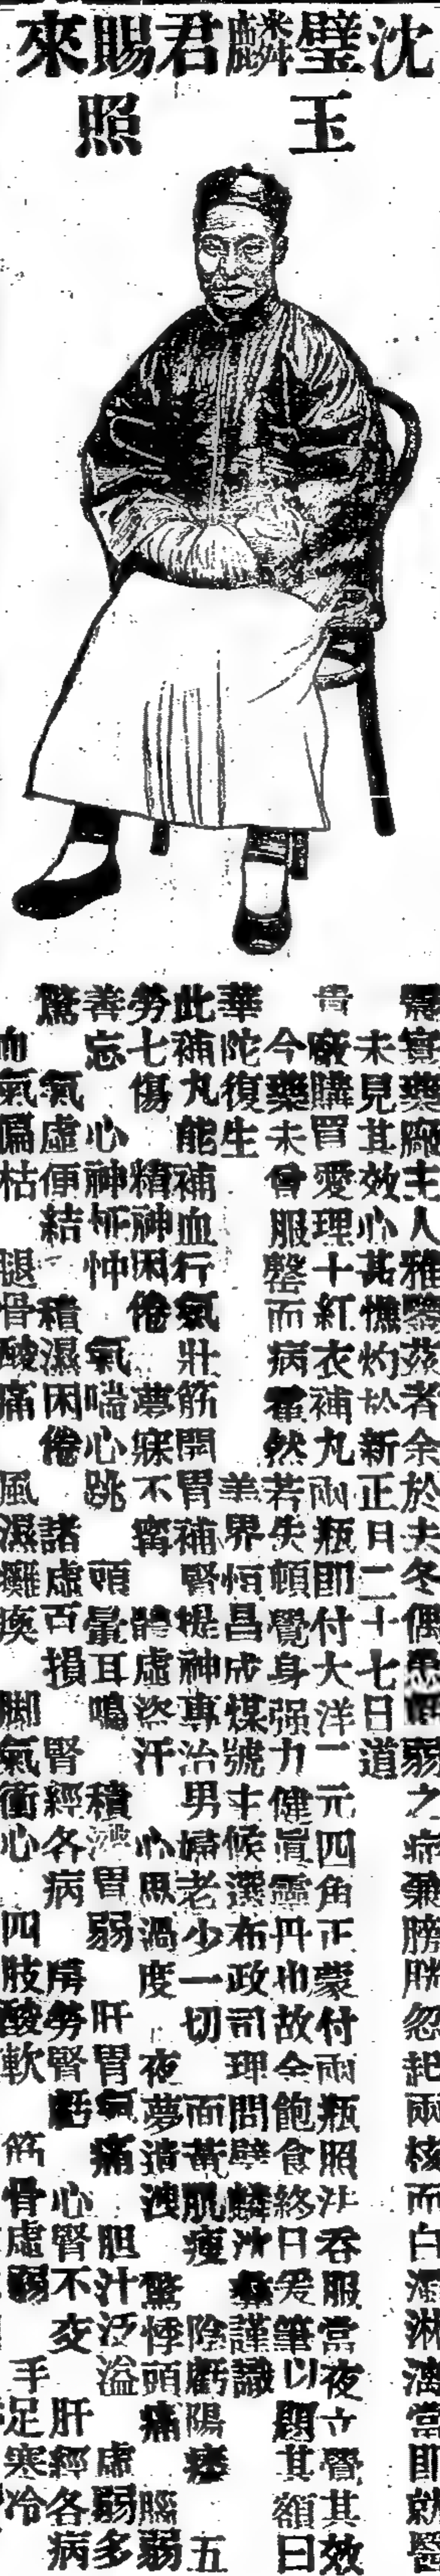 沈璧麟君賜來
玉照
靈寶藥廠主人雅鑒茲者余於去冬偶弱之症兼膀胱忽起兩核而白濁淋漓當即就醫
未見其效心甚憔灼於新正日二十七日道
貴廠購買愛理十紅衣補丸兩瓶即付大洋一元四角正蒙付兩瓶照法吞服當夜立覺其效
今藥未曾服罄而病霍然若失頓覺身强力健眞靈丹也故余飽食終日爰筆以題其額曰
華陀復生 美界恒昌成煤號主候選布政司理問璧麟沈謹識
此補丸能補血行氣壯筋開胃補腎提神專治男婦老少一切 面黃肌瘦 陰虧陽痿 五
勞七傷 精神困倦 夢寐不甯 體虛盜汗 心思過度 夜夢遺洩 驚悸頭痛 腦弱
善忘 心神怔忡 氣喘心跳 頭暈耳鳴 積滯胃弱 肝胃氣痛 胆汁泛溢 虛弱多
驚 氣虛便結 積濕困倦 諸虛百損 腎經各病 房勞腎虧 心腎不交 肝經各病
血氣偏枯 腿骨酸痛 風濕癱瘓 脚氣衝心 四肢酸軟 筋骨虛弱 手足寒冷